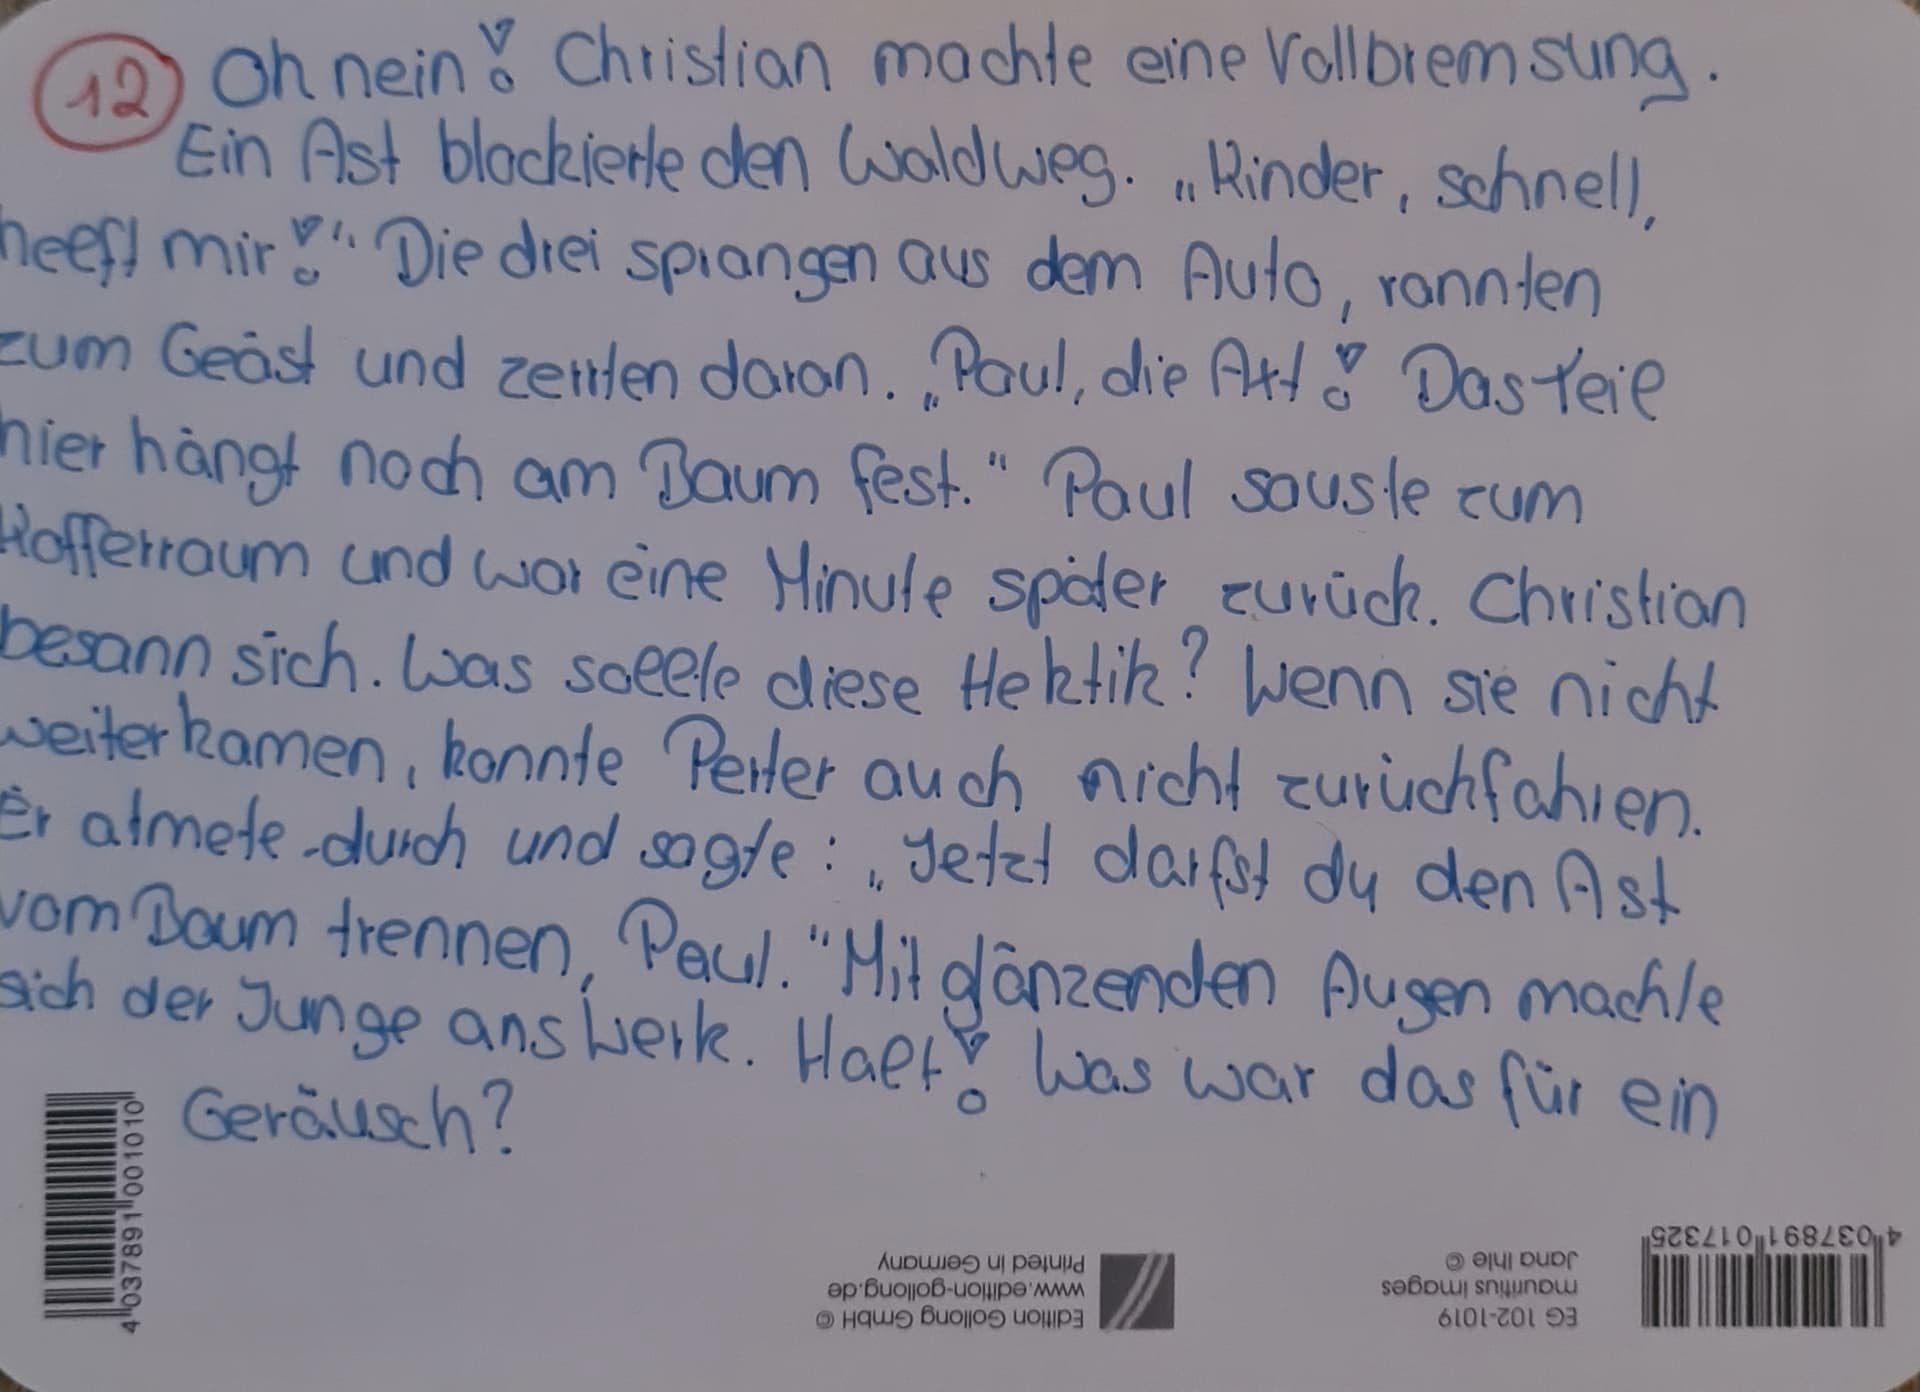 12 Oh nein! Christian machte eine Vollbremsung.
Ein Ast blockierte den Waldweg. „Kinder, schnell,
helft mir!“ Die drei sprangen aus dem Auto, rannten
zum Geäst und zerrten daran. „Paul, die Axt! Das Teil
hier hängt noch am Baum fest.“ Paul sauste zum
Kofferraum und war eine Minute später zurück. Christian
besann sich. Was sollte diese Hektik? Wenn sie nicht
weiterkamen, konnte Perter auch nicht zurückfahren.
Er atmete durch und sagte: „Jetzt darfst du den Ast
vom Baum trennen, Paul.“ Mit glänzenden Augen machte
sich der Junge ans Werk. Halt! Was war das für ein
Geräusch?
4 037891 001010
4 037891 017325
EG 102-1019
mauritius images
Jana Ihle ©
Edition Gollong GmbH ©
www.edition-gollong.de
Printed in Germany